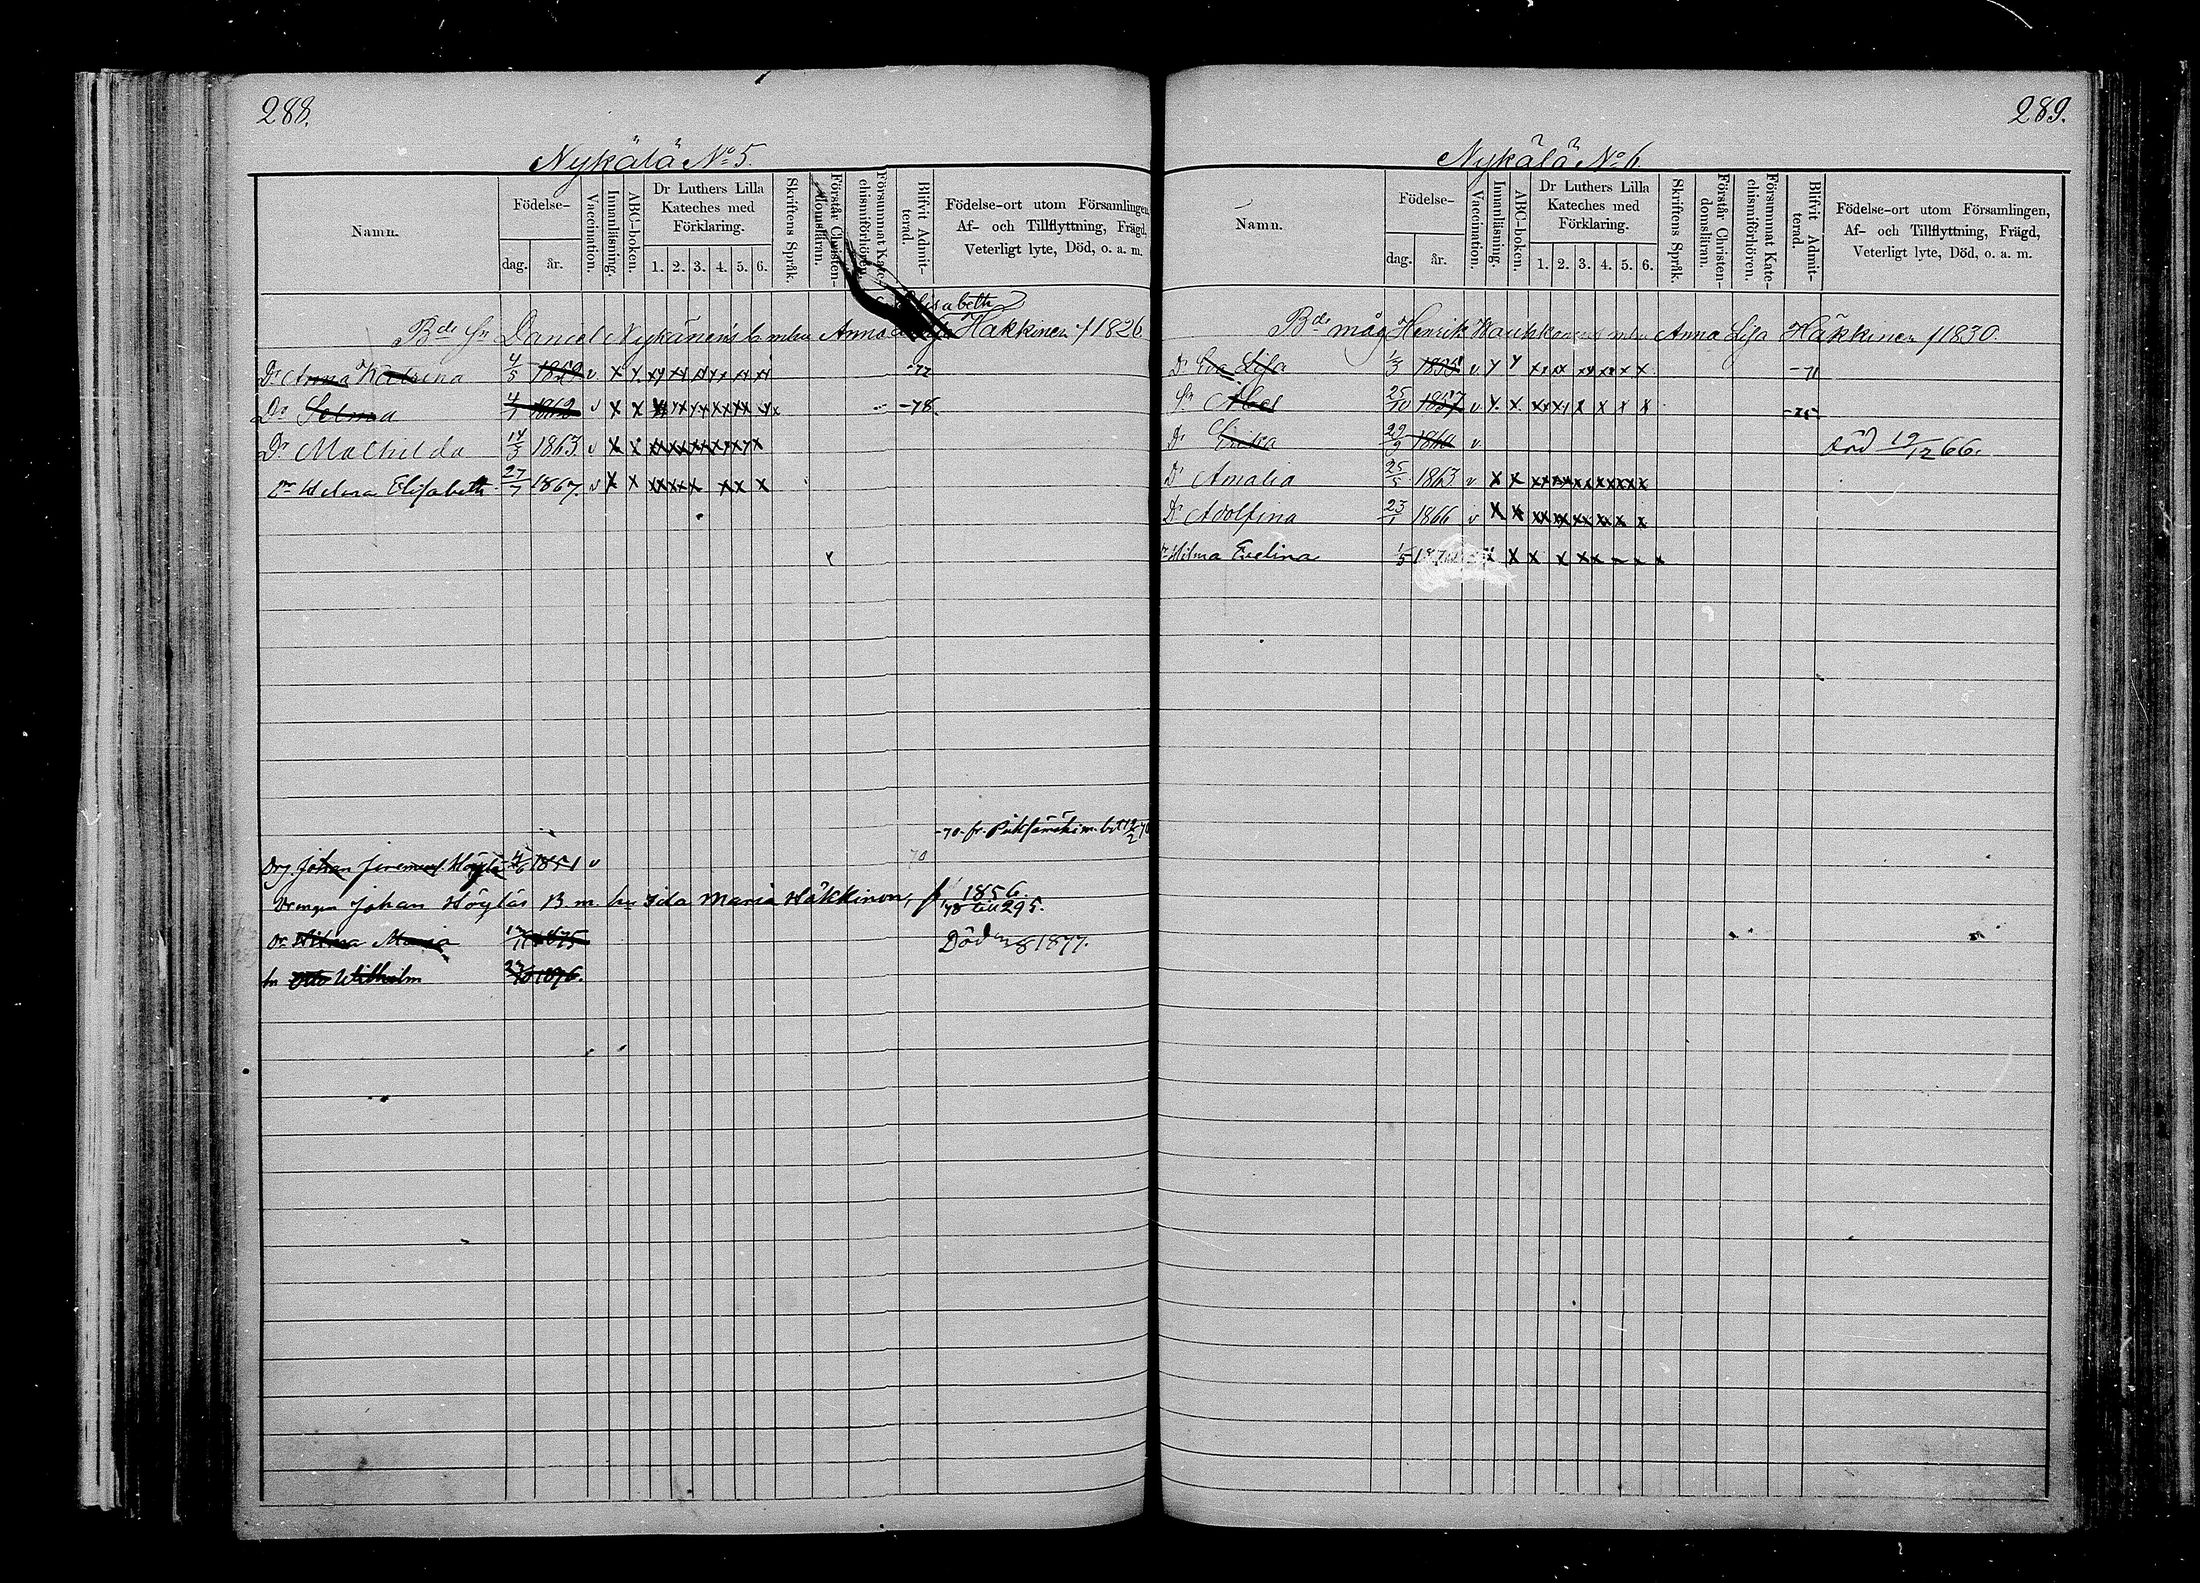 288.
Nykälä No 5
Namn.
Födelse-
dag. år.
Vaccination.
Innanläsning.
ABC-boken.
Dr Luthers Lilla Kateches med Förklaring.
1. 2. 3. 4. 5. 6.
Skriftens Språk.
Förstår Christendomsläran.
Försummat Katechismiförhören.
Blifvit Admitterad.
Födelse-ort utom Församlingen,
Af- och Tillflyttning, Frägd,
Veterligt lyte, Död, o. a. m.
Elisabeth
Bde Sn Daniel Nykänens barn med Anna Häkkinen f 1826
Dr Anna Katrina 4/5 1859 v. x x. -77
Dr Selma 1862 v x x -78.
Dr Mathilda 14/3 1863 v x x
Dr Helena Elisabeth 27/7 1867. v x x
-70 fr. Pieksämäki
Drg Johan Jeremias Höglas 1851 v
70
Drengen Johan Höglas B m hu Ida Maria Häkkinen, f 1856.
78 till 295.
Dr Hilma Maria 1875 Död 1877.
Sn Otto Wilhelm 1876.
289.
Nykälä No 6
Namn.
Födelse-
dag. år.
Vaccination.
Innanläsning.
ABC-boken.
Dr Luthers Lilla Kateches med Förklaring.
1. 2. 3. 4. 5. 6.
Skriftens Språk.
Förstår Christendomsläran.
Försummat Katechismiförhören.
Blifvit Admitterad.
Födelse-ort utom Församlingen,
Af- och Tillflyttning, Frägd,
Veterligt lyte, Död, o. a. m.
Bde måg Henrik Kaukkanens Anna Lisa Häkkinen f 1830.
Dr Eva Lisa 1/3 1855 v -71
Sn Abel 25/10 1857 v -75
Dr Erika 29/9 1860 v. död 19/12 66.
Dr Amalia 25/5 1863 v x x
Dr Adolfina 23/1 1866 v x x
Dr Hilma Evelina 1/5 x x